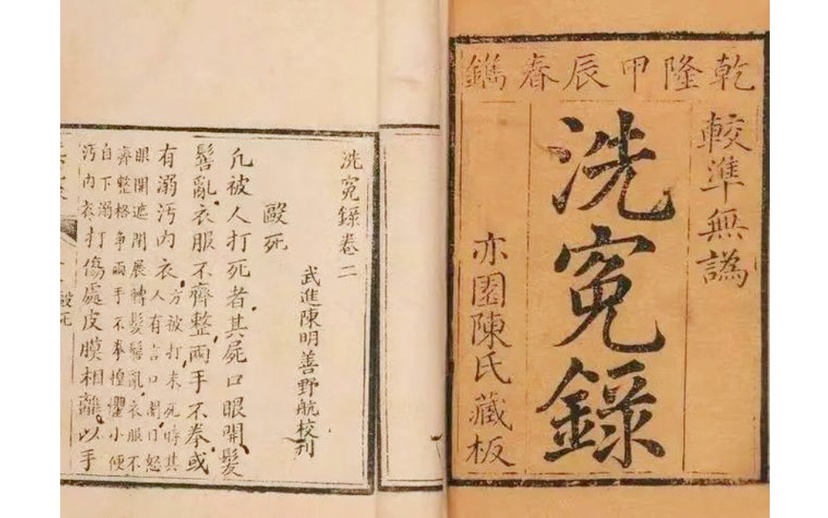 乾隆甲辰春鐫
較準無譌
洗寃錄
亦園陳氏藏板
洗寃錄卷二
武進陳明善野航校刊
毆死
凡被人打死者其屍口眼開髮
髻亂衣服不齊整兩手不拳或
有溺汚內衣方被打未死時其
人有言口開盯怒
眼開遮閉展轉髮髻亂衣服不
齊整格爭兩手不拳惶懼小便
自下溺
汚內衣打傷處皮膜相離以手
毆死